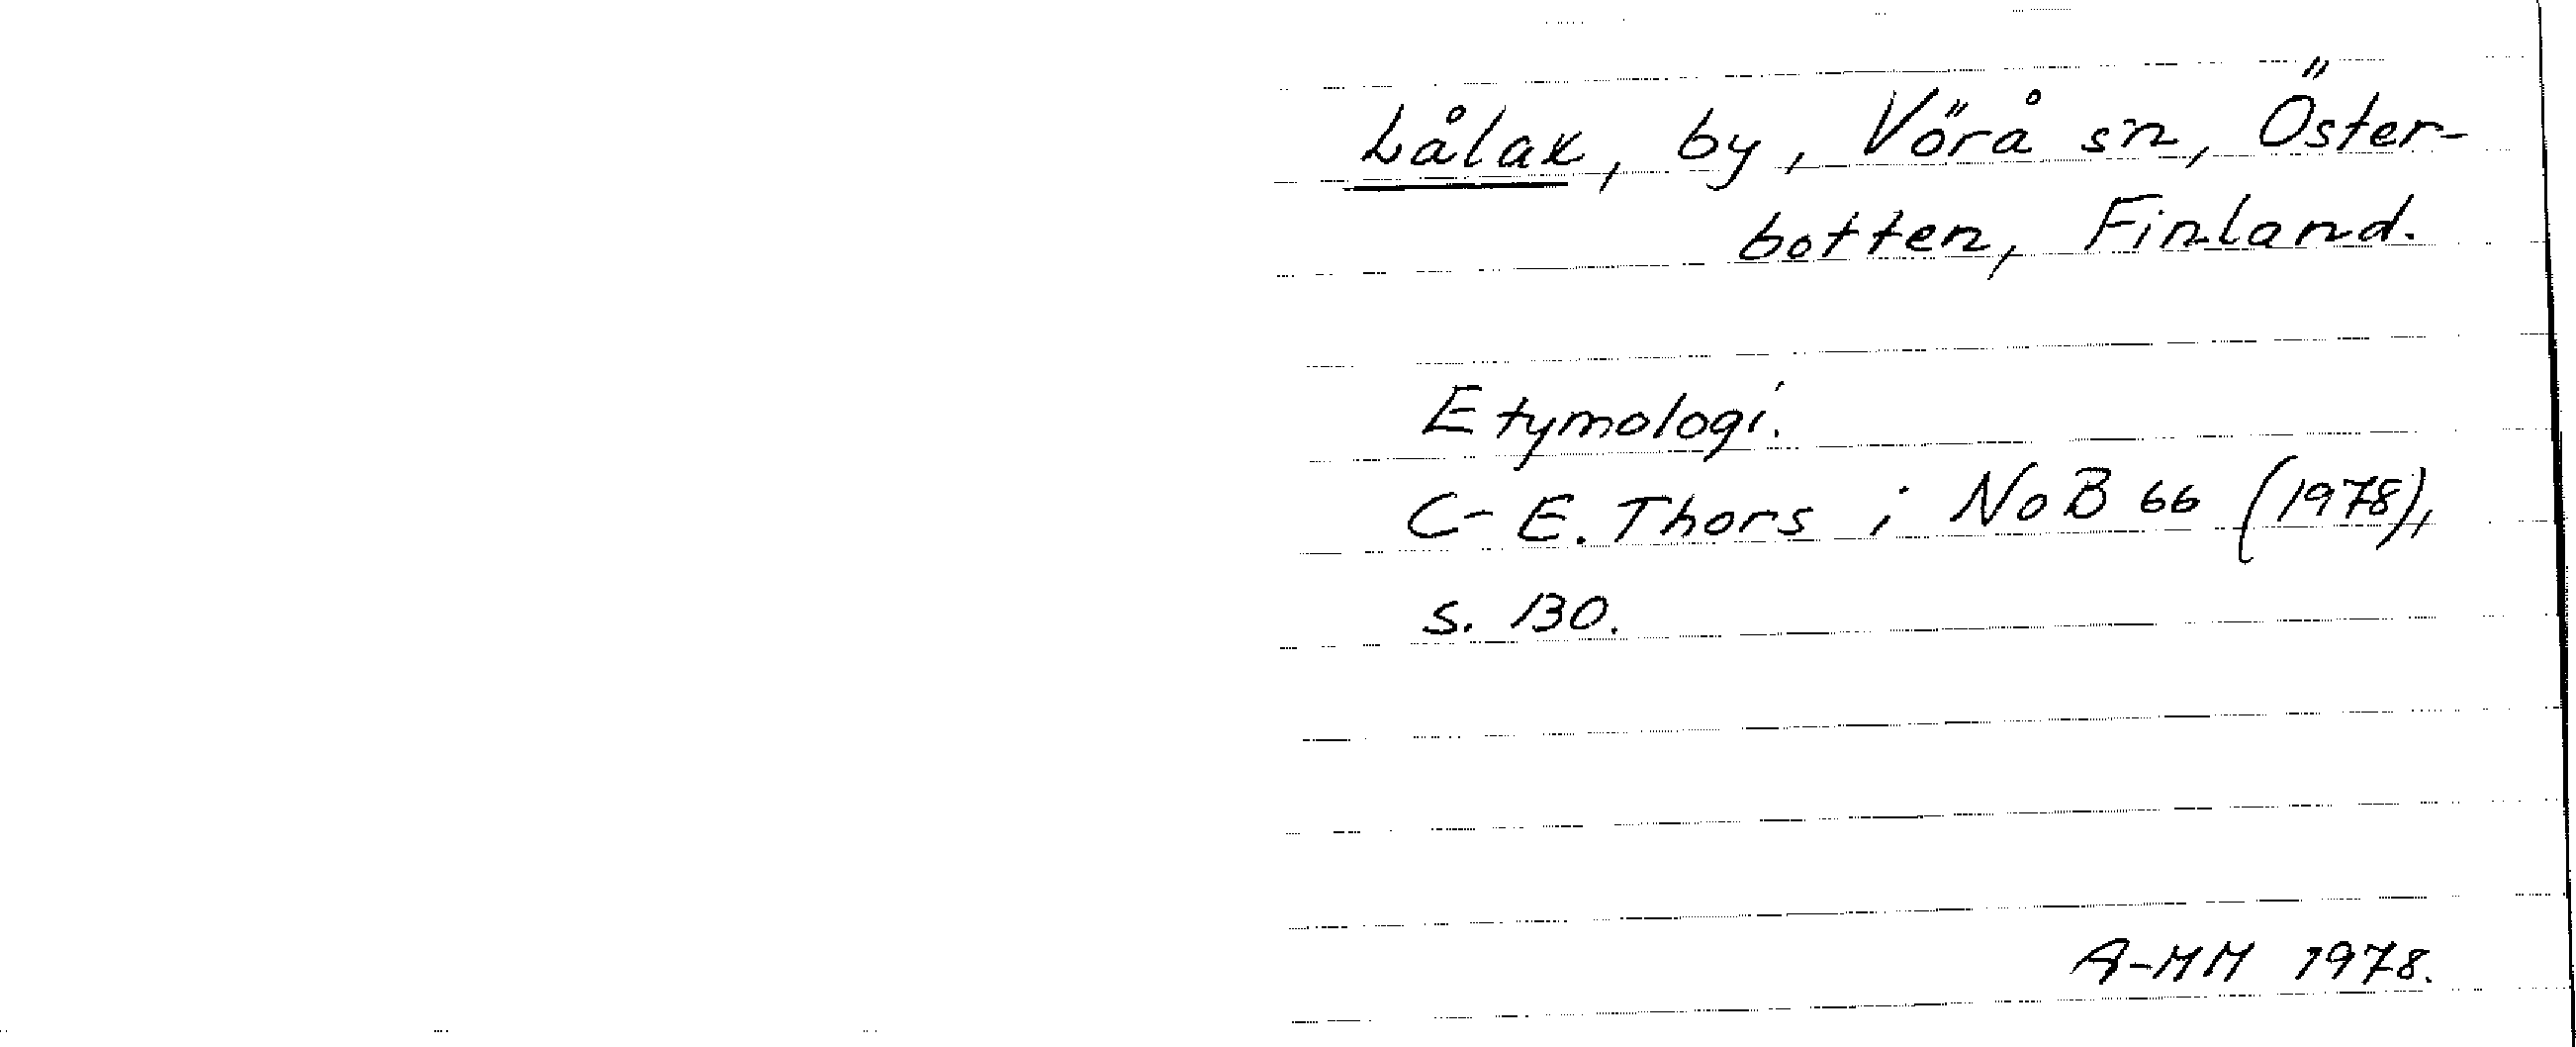 Lålax, by, Vörå sn, Öster-
botten, Finland.
Etymologi.
C-E. Thors i NoB 66 (1978),
s. 130.
A-MM 1978.